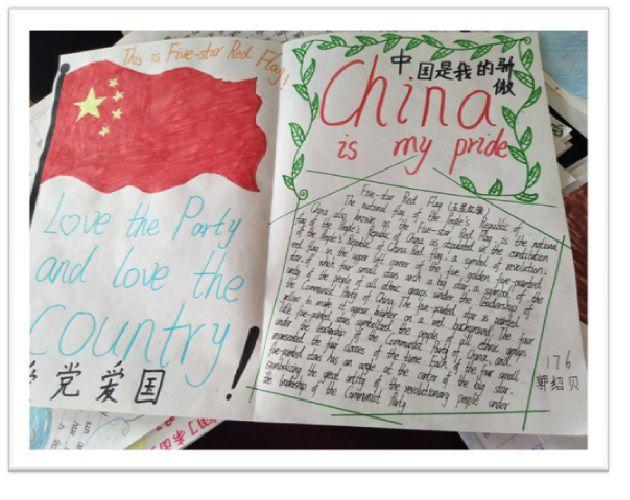 This is Five-star Red Flag!
Love the Party
and love the
Country!
党爱国
中国是我的骄傲
China
is my pride
Five-star Red Flag (五星红旗)
The national flag of the People's Republic of
China, also known as the Five-star Red Flag, is the national
flag of the People's Republic of China as stipulated by the constitution
of the People's Republic of China. Red flag, a symbol of revolution,
red flag in the upper left corner of the five golden five-pointed
star, of which four small stars arch a big star, a symbol of the
unity of the people of all ethnic groups under the leadership of
the Communist Party of China. The five-pointed star is painted
yellow to make it appear brighter on a red background. The four
little five-pointed stars symbolized the people of all ethnic groups
under the leadership of the Communist Party of China, and
represented the four classes of the time. Each of the four small
five-pointed stars has an angle at the center of the big star,
symbolizing the great unity of the revolutionary people under
the leadership of the Communist Party.
176
郭绍贝